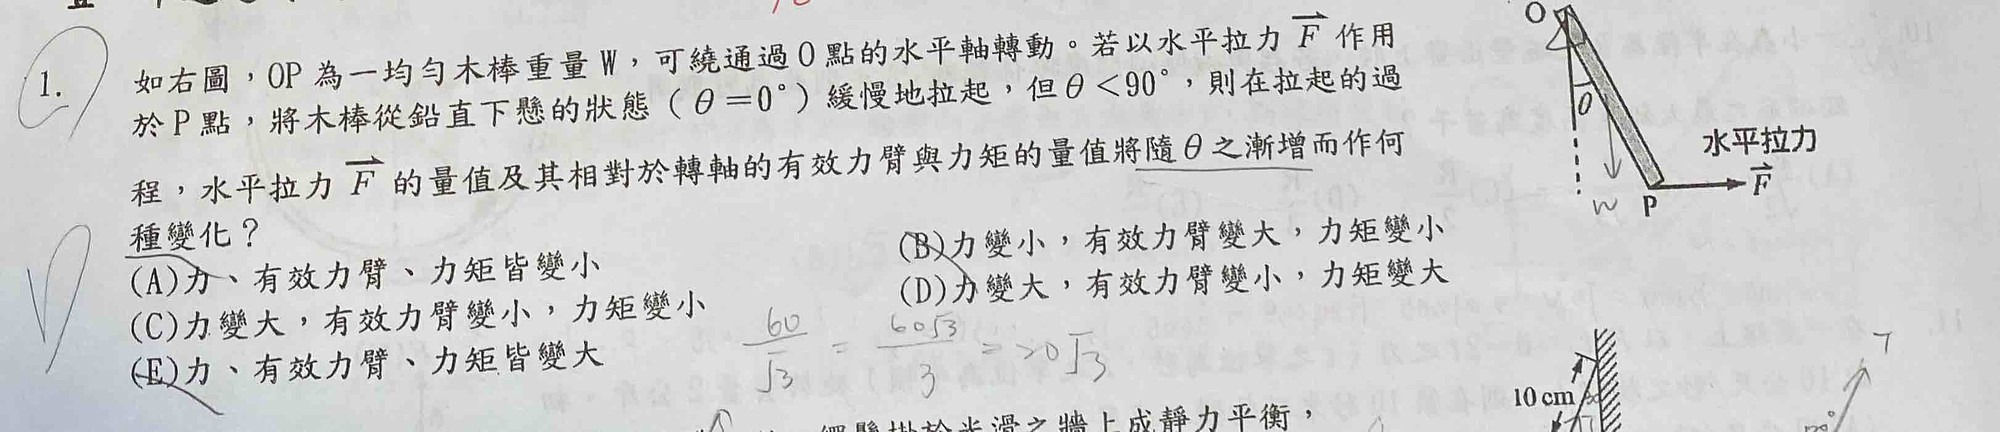 1. 如右圖，OP 為一均勻木棒重量 W，可繞通過 O 點的水平軸轉動。若以水平拉力 F 作用
於 P 點，將木棒從鉛直下懸的狀態（θ＝0°）緩慢地拉起，但 θ＜90°，則在拉起的過
程，水平拉力 F 的量值及其相對於轉軸的有效力臂與力矩的量值將隨 θ 之漸增而作何
種變化？
(A)力、有效力臂、力矩皆變小
(B)力變小，有效力臂變大，力矩變小
(C)力變大，有效力臂變小，力矩變小
(D)力變大，有效力臂變小，力矩變大
(E)力、有效力臂、力矩皆變大
60/√3 = 60√3/3 = 20√3
O
θ
W
P
水平拉力
F
10 cm
T
繩懸掛於光滑之牆上成靜力平衡，